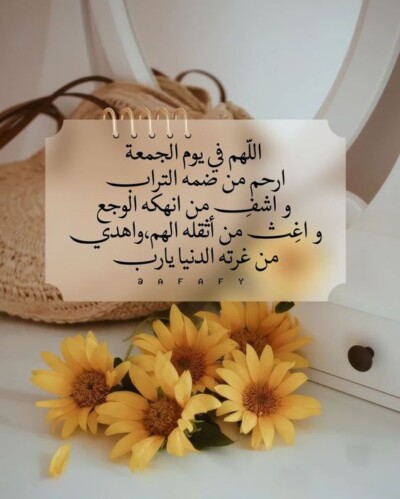 اللّهم في يوم الجمعة
ارحم من ضمه التراب
و اشفِ من انهكه الوجع
و اغِث من أثقله الهم،واهدي
من غرته الدنيا يارب
@AFAFY